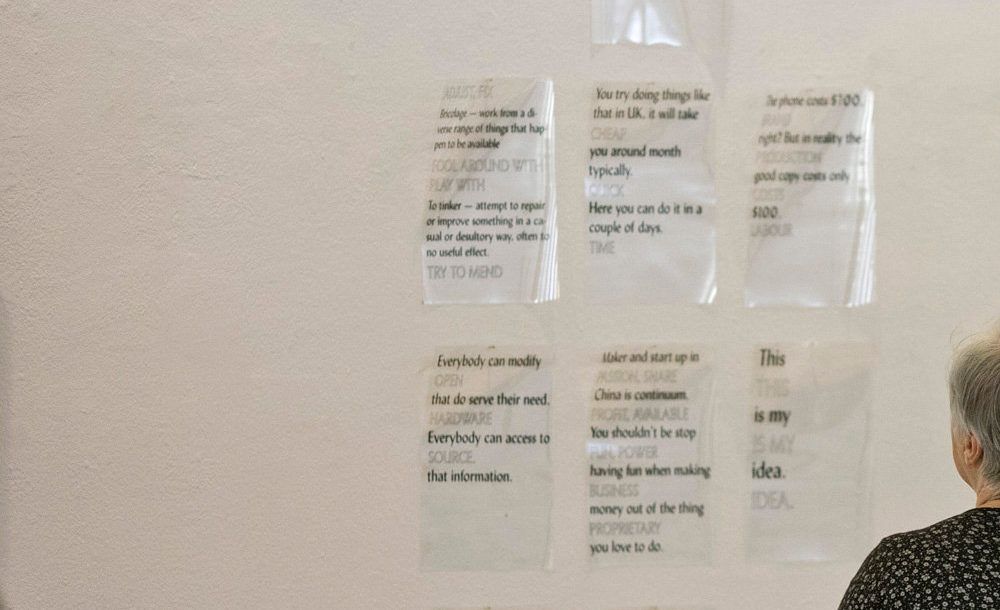 ADJUST, FIX
Bricolage — work from a di-
verse range of things that hap-
pen to be available
FOOL AROUND WITH
PLAY WITH
To tinker — attempt to repair
or improve something in a ca-
sual or desultory way, often to
no useful effect.
TRY TO MEND
You try doing things like
that in UK, it will take
CHEAP
you around month
typically.
QUICK
Here you can do it in a
couple of days.
TIME
The phone costs $700.
BRAND
right? But in reality the
PRODUCTION
good copy costs only
COSTS
$100.
LABOUR
Everybody can modify
OPEN
that do serve their need.
HARDWARE
Everybody can access to
SOURCE.
that information.
Maker and start up in
MISSION, SHARE
China is continuum.
PROFIT, AVAILABLE
You shouldn't be stop
FUN, POWER
having fun when making
BUSINESS
money out of the thing
PROPRIETARY
you love to do.
This
THIS
is my
IS MY
idea.
IDEA.